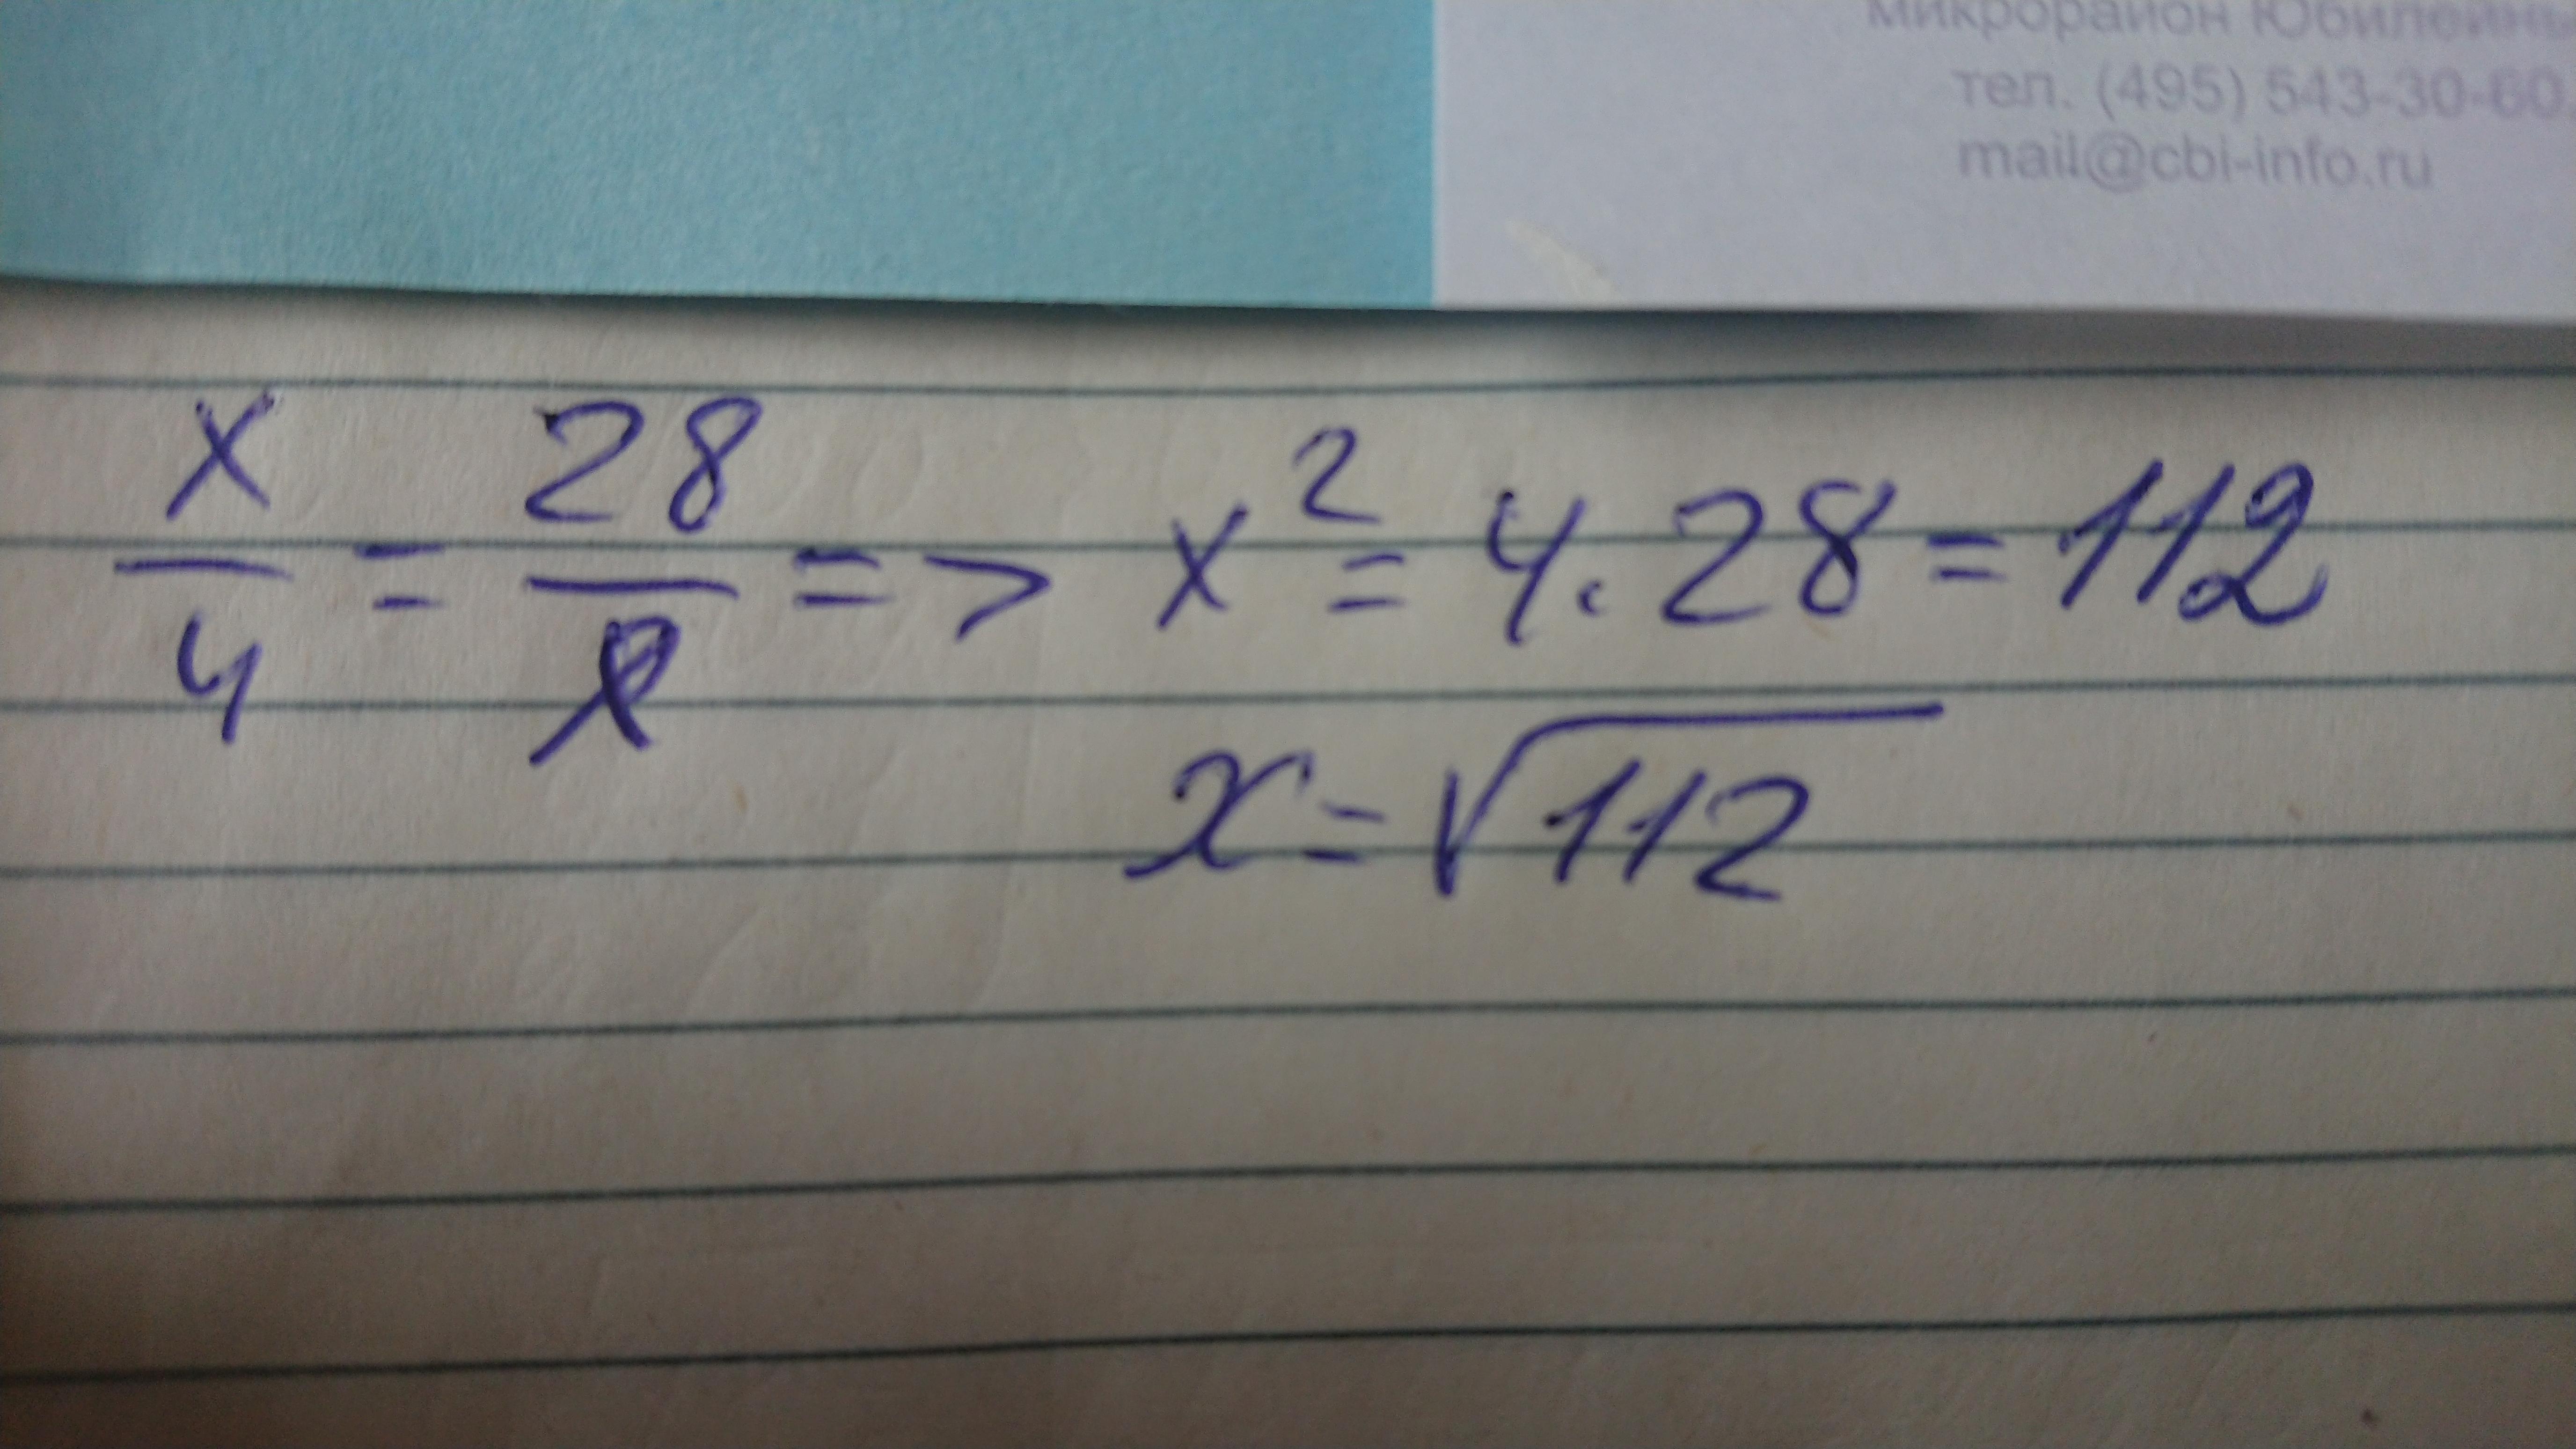 микрорайон Юбилейны
тел. (495) 543-30-60
mail@cbi-info.ru
x/4 = 28/x => x² = 4·28 = 112
x = √112